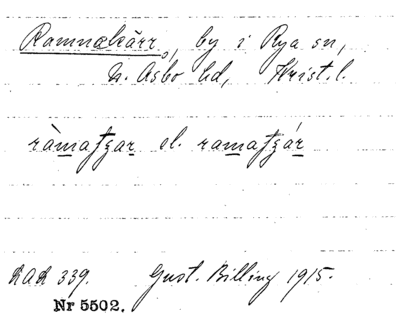 Ramnakärr, by i Rya sn,
N. Åsbo hd, Krist. l.
ràmatʒar el. ramatʒár
LAL 339. Gust. Billing 1915.
Nr 5502.